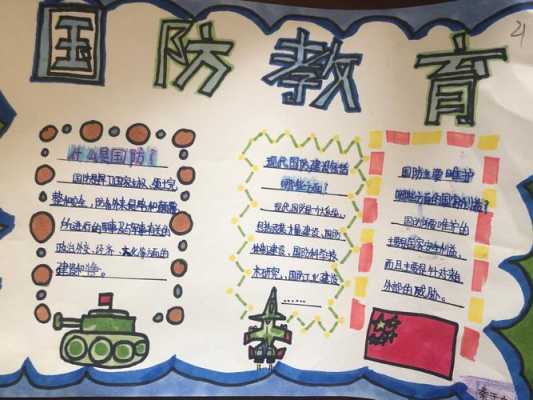 国防教育
21
什么是国防？
国防是为了国家主权、领土完
整和安全，防备外来侵略和颠覆
所进行的军事及与军事有关的
政治外交、经济、文化等方面的
建设和斗争。
现代国防建设包括
哪些方面？
现代国防是个大系统，
包括武装力量建设、国防
体制建设、国防科学技
术研究、国防工业建设
……
国防主要维护
哪些方面的国家利益？
国防所要维护的
主要是国家安全利益，
而且主要是针对来自
外部的威胁。